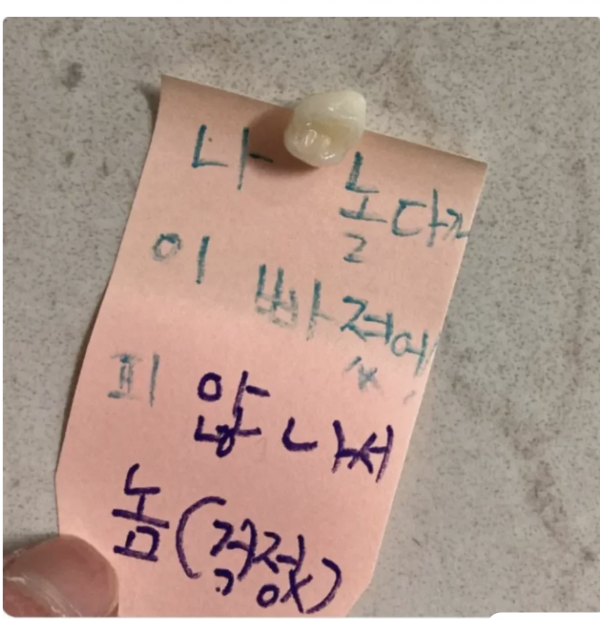 나 놀다가
이 빠졌어
피 않 나써
놈(걱정x)